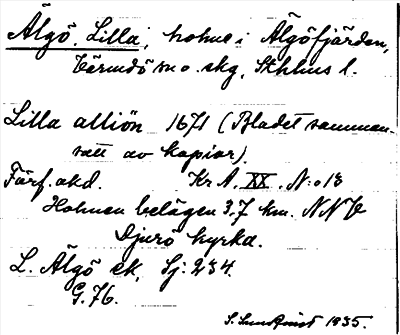 Älgö, Lilla, holme i Älgöfjärden,
Värmdö m.o. skg, Sthlms l.
Lilla alliön 1671 (Bladet samman-
satt av kopior).
Förf. akd. Kr A. XX. N:o 13
Holmen belägen 3,7 km. NNV
Djurö kyrka.
L. Älgö ek, Sj: 234.
G. 76.
S. Sundkvist 1935.